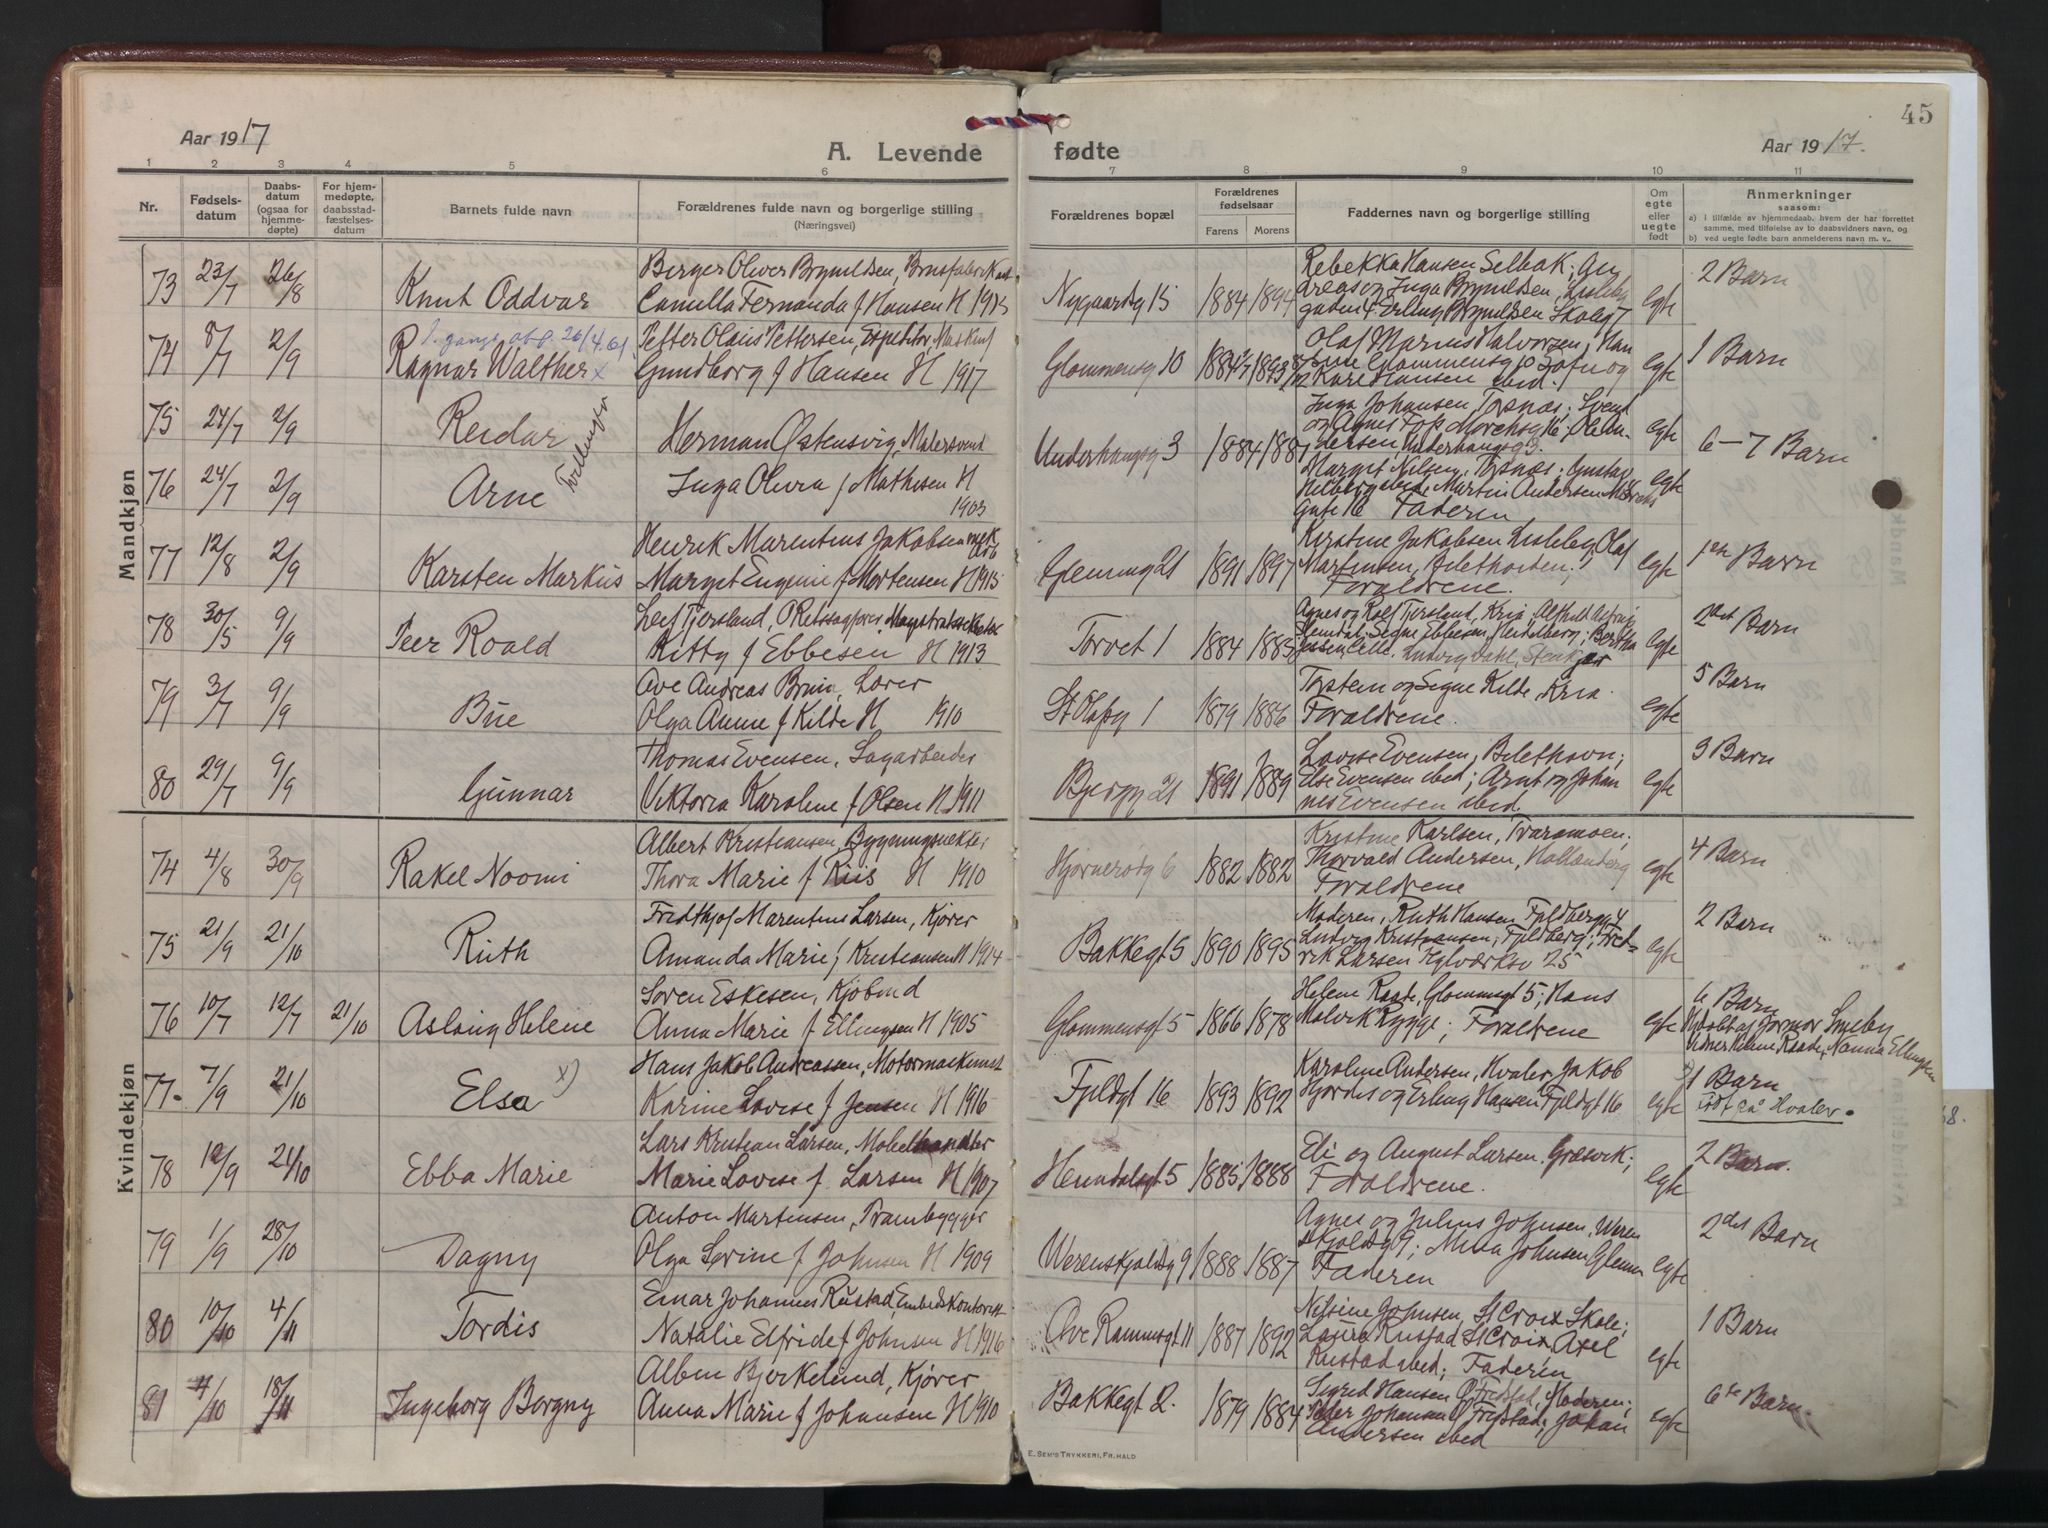 45
Aar 1917
A. Levende fødte
Aar 1917.
1 2 3 4 5 6 7 8 9 10 11
Nr.
Fødsels-
datum
Daabs-
datum
(ogsaa for
hjemme-
døpte)
For hjem-
medøpte,
daabsstad-
fæstelses-
datum
Barnets fulde navn
Forældrenes fulde navn og borgerlige stilling
(Næringsvei)
Forældrenes bopæl
Forældrenes
fødselsaar
Farens Morens
Faddernes navn og borgerlige stilling
Om
egte
eller
uegte
født
Anmerkninger
saasom:
a) i tilfælde av hjemmedaab, hvem der har forrettet
samme, med tilføielse av to daabsvidners navn, og
b) ved uegte fødte barn anmelderens navn m. v.
Mandkjøn
73 23/7 26/8 Knut Oddvar
Berger Oliver Brynildsen
Camilla Fernanda f Hansen H 1915
Nygaardsg 15 1884 1894
Rebekka Hansen Selbak; An
dreas og Inga Brynildsen, Lisleby
gaden 4. Erling Brynildsen Skoleg 7
egte 2 Barn
74 8/7 2/9 Ragnar Walther x
26/4.61.
Petter Olaus Pettersen, Expeditør,
Gundborg f Hansen H 1917
Glommensg 10
Olaf Marius Halvorsen, Han
Glommensg 10 og
Kare Hansen ibid.
egte 1 Barn
75 24/7 2/9 Reidar
Tvillinger
Herman Østensvig, Malersvend
Underhaugsg 3 1884 1881
Inga Johansen, Torsnæs;
og Agnes Mørchsg 16; Ole An-
dersen, Underhaugsg 3.
egte 6-7 Barn
76 24/7 2/9 Arne
Inga Olivia f Mathisen H
1903
Margit Nilsen, Torsnæs; Gustav
ibid, Martin Andersen
Gate 16 Faderen
egte
77 12/8 2/9 Karsten Markus
Henrik Marentius Jakobsen mek arb
Marget Eugenie f Mortensen H 1915
Glemmeng 21 1891 1897
Kirstine Jakobsen Lisleby, Olaf
Martinsen,
Forældrene.
egte Barn
78 30/5 9/9 Peer Roald
Leif Tjersland, Magistratssekretær
Kitty f Ebbesen H 1913
Torvet 1 1884 1885
Agnes og Rolf Tjersland, Kria,
Signe Ebbesen, Heidelberg; Bertha
Jessen, Ludvig Dahl, Stenkjær
egte 2det Barn
79 3/7 9/9 Büe
Ove Andreas Lærer
Olga Anne f Kilde H 1910
St Olafsg 1 1879 1886
Torstein og Signe Kilde, Kria.
Forældrene.
egte 5 Barn
80 29/7 9/9 Gunnar
Thomas Evensen, Sagarbeider
Viktoria Karoline f Olsen H 1911
Bjergg 21 1891 1889
Lovise Evensen,
Else Evensen ibid; Arnt og Johan
nes Evensen ibid.
egte 3 Barn
Kvindekjøn
74 4/8 30/9 Rakel Noomi
Albert Kristiansen,
Thora Marie f Riis H 1910
Hjørnerødg 6 1882 1882
Kristine Karlsen,
Thorvald Andersen,
Forældrene
egte 4 Barn
75 21/9 21/10 Ruth
Fridthjof Marentius Larsen, Kjører
Amanda Marie f Kristiansen H 1914
Bakkegt 5 1890 1895
Moderen, Ruth Hansen Fjeldbergg 4
Ludvig Kristiansen, Fjeldberg; Fred-
rik Larsen 25
egte 2 Barn
76 10/7 12/7 21/10 Aslaug Helene
Søren Eskesen, Kjøbmd
Anna Marie f Ellingsen H 1905
Glommensgt 5 1866 1878
Helene Raade, Glommsgt 5; Hans
Malvik Rygge; Forældrene
egte 6 Barn
Hjdøbt af Jormor Smeby
Vidner Helene Raade, Nanna Ellingsen
77- 7/9 21/10 Elsa x)
Hans Jakob Andreassen, Motormaskinist
Karine Lovise f Jensen H 1916
Fjeldgt 16 1893 1892
Karoline Andersen, Hvaler, Jakob
Hjørdis og Erling Hansen Fjeldgt 16
egte 1 Barn
født på Hvaler.
68.
78 12/9 21/10 Ebba Marie
Lars Kristian Larsen, Møbelhandler
Marie Lovise f Larsen H 1907
Heimdalsgt 5 1885 1888
Eli og August Larsen. Græsvik;
Forældrene.
egte 2 Barn.
79 1/9 28/10 Dagny
Anton Martinsen,
Olga Severine f Johnsen H 1909
Werenskjoldsg 9 1888 1887
Agnes og Julius Johnsen, Weren
skjoldsg 9; Mina Johnsen
Faderen
egte 2det Barn
80 10/10 4/11 Tordis
Einar Johannes Rustad, Embedskontorist
Natalie Elfride f Johnsen H 1916
Ove Rammsgt 11 1887 1892
Nilsine Johnsen, St Croix Skole;
Laura Rustad St Croix, Axel
Rustad ibid; Faderen
egte 1 Barn
81 4/10 18/11 Ingeborg Borgny
Alben Bjerkelund, Kjører
Anna Marie f Johansen H 1910
Bakkegt 2. 1879 1884
Sigrid Hansen Ø Fredstad, Moderen;
Peder Johansen Ø Fredstad; Johan
Andersen ibid
egte 6te Barn.
E. Sem's Trykkeri, Fr.hald